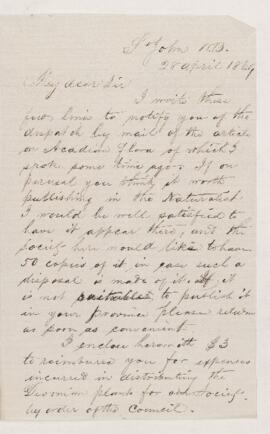 St John N.B.
28 April 1869
My dear Sir
I write these
few lines to notify you of the
dispatch by mail of the article
on Acadian Flora of which I
spoke some time ago. If on
perusal you think it worth
publishing in the Naturalist
I would be well satisfied to
have it appear there, and the
Society here would like to have
50 copies of it in case such a
disposal is made of it. If it
is not suitable to publish it
in your Province please return
as soon as convenient.
I enclose herewith $3
to reimburse you for expenses
incurred in distributing the
plants for our Society
by order of the Council.